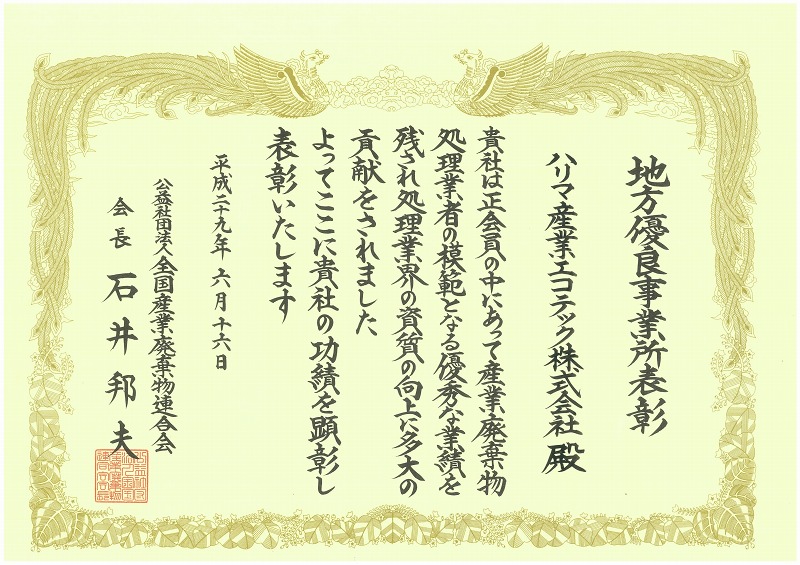 地方優良事業所表彰
ハリマ産業エコテック株式会社 殿
貴社は正会員の中にあって産業廃棄物
処理業者の模範となる優秀な業績を
残され処理業界の資質の向上に多大の
貢献をされました
よってここに貴社の功績を顕彰し
表彰いたします
平成二十九年 六月十六日
公益社団法人全国産業廃棄物連合会
会長 石井邦夫